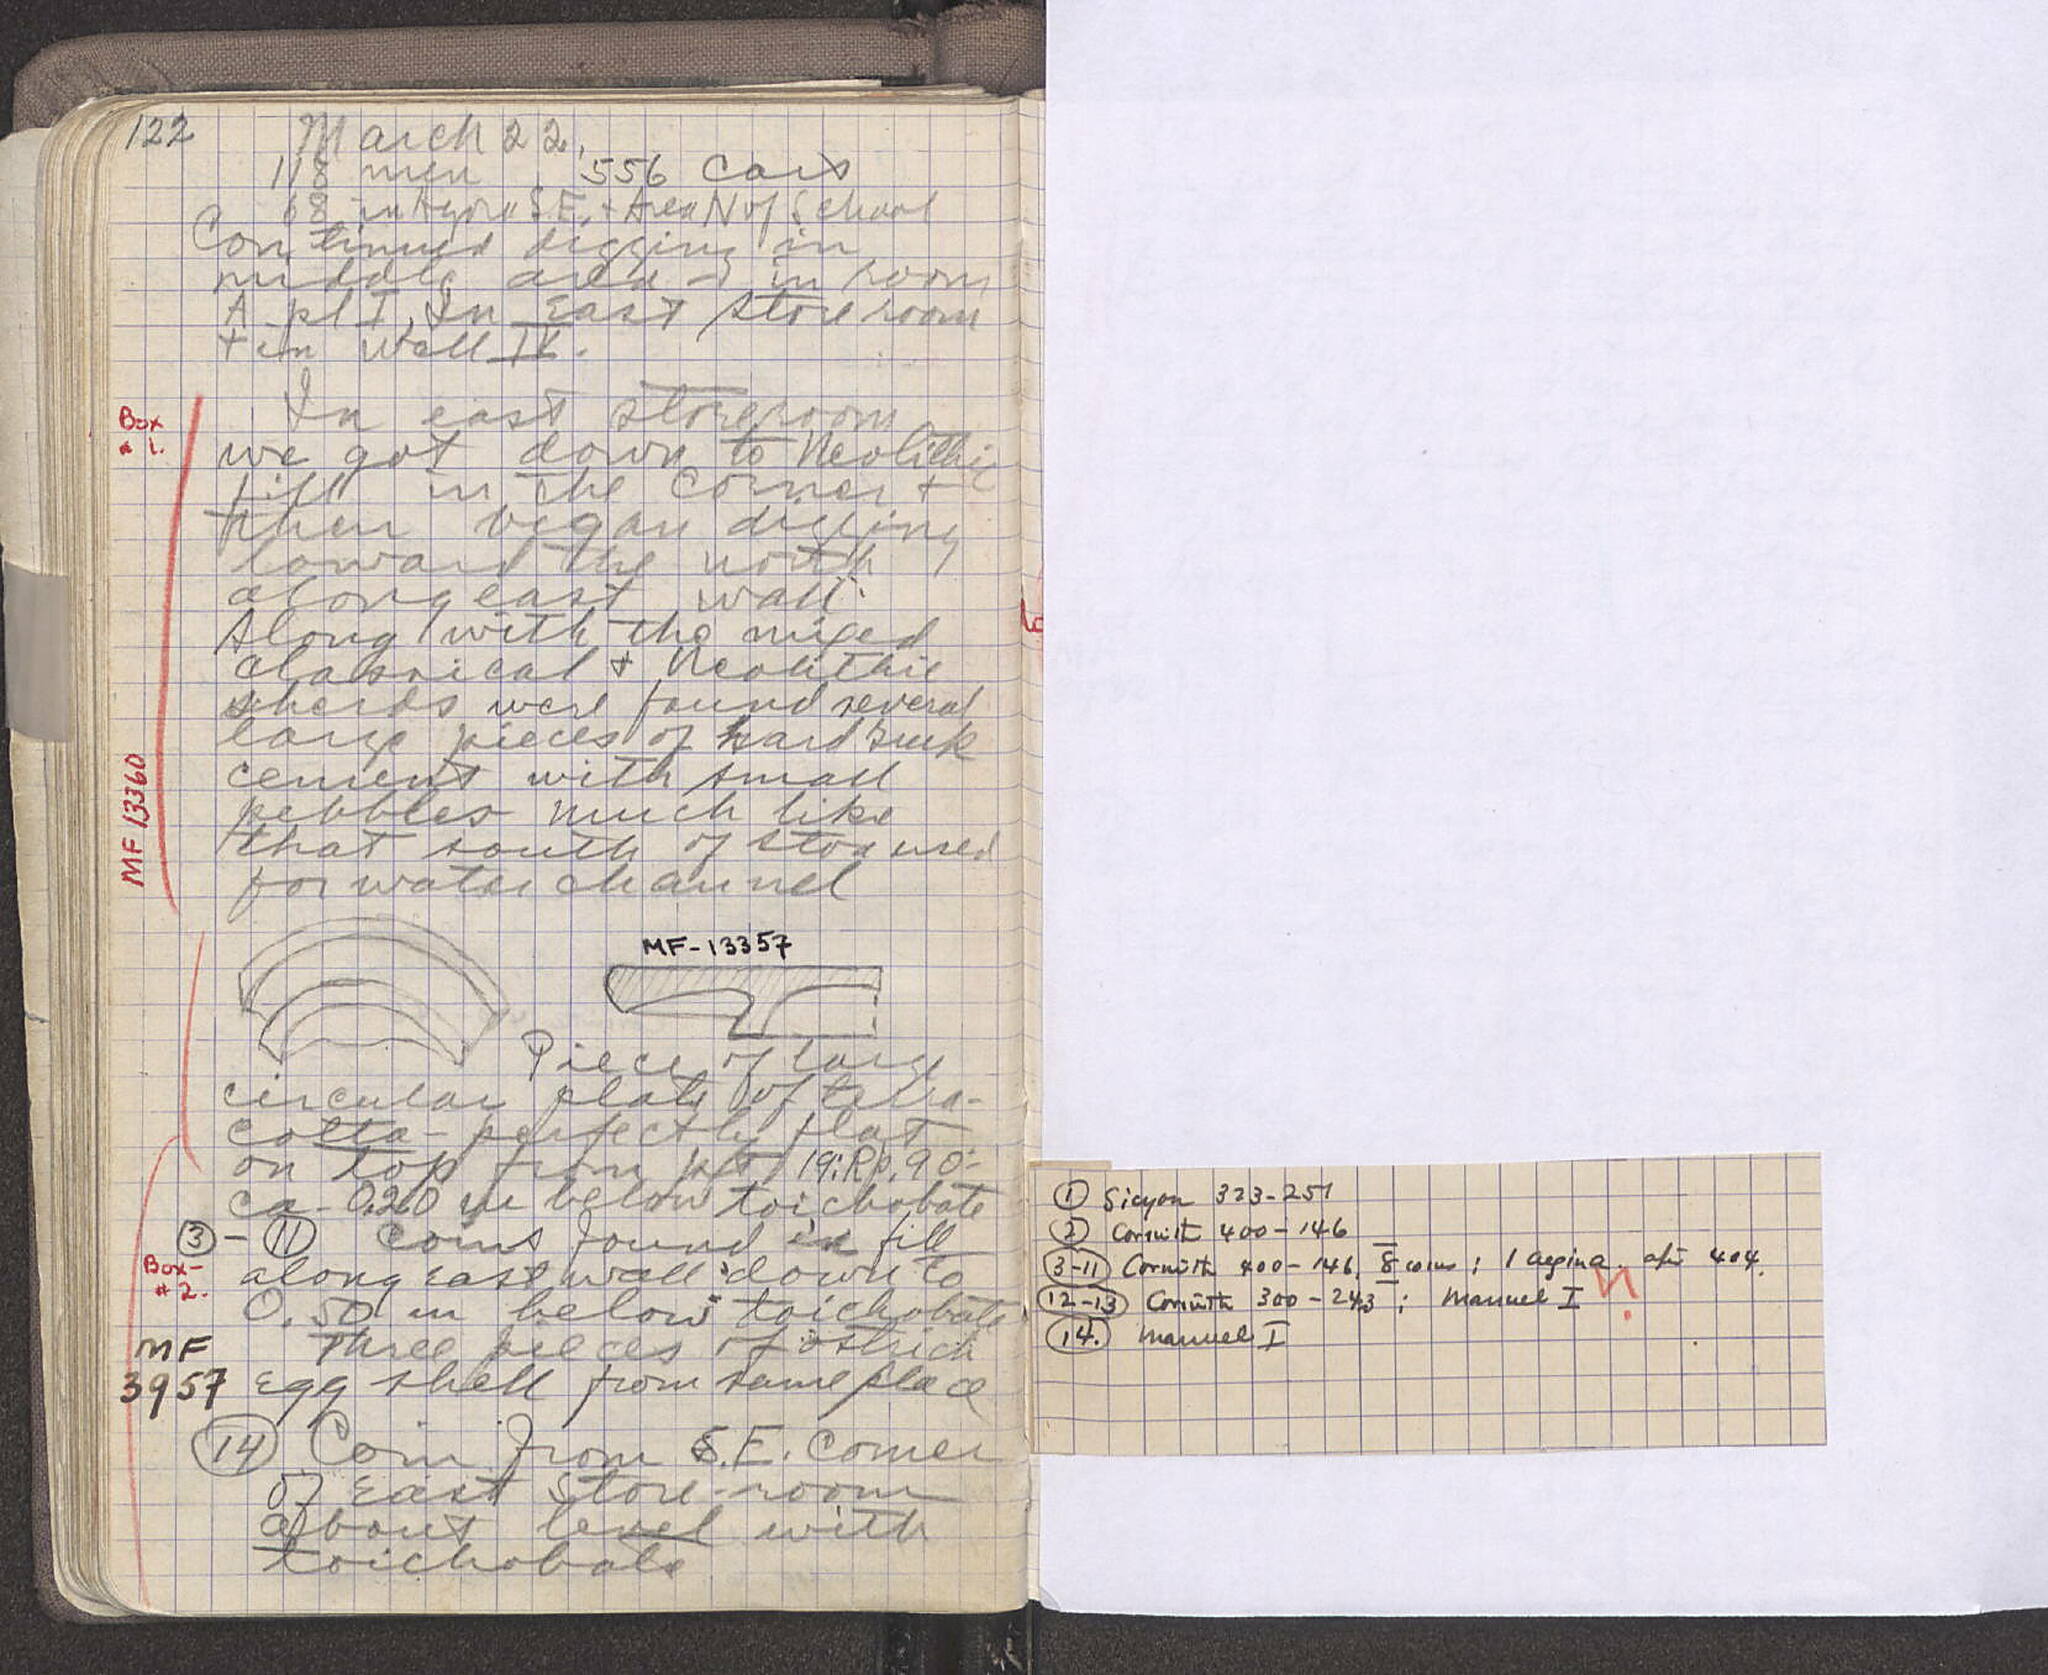 122
March 22.
118 men 556 cars
68 in Agora S.E. + Area N of School
Continued digging in
middle area - in room
A pl I, In East store room
+ in wall IX.
Box
# 1.
In east storeroom
we got down to Neolithic
fill in the corner +
then began digging
toward the north
along east wall.
Along with the mixed
classical + Neolithic
sherds were found several
large pieces of hard
cement with small
pebbles much like
that south of stoa used
for water channel
MF 13360
MF-13357
Piece of large
circular plate of terra-
cotta - perfectly flat
on top from 19:Rp.90-
ca. 0.20 m below toichobate
3 - 11 Coins found in fill
along east wall down to
Box-
# 2.
0.50 m below toichobate
Three pieces of ostrich
egg shell from same place
MF
3957
14 Coin from S.E. corner
of East Store-room
about level with
toichobate
1 Sicyon 323-251
2 Corinth 400-146
3-11 Corinth 400-146, 8 coins; 1 Aegina 404.
12-13 Corinth 300-243; Manuel I
14. Manuel I